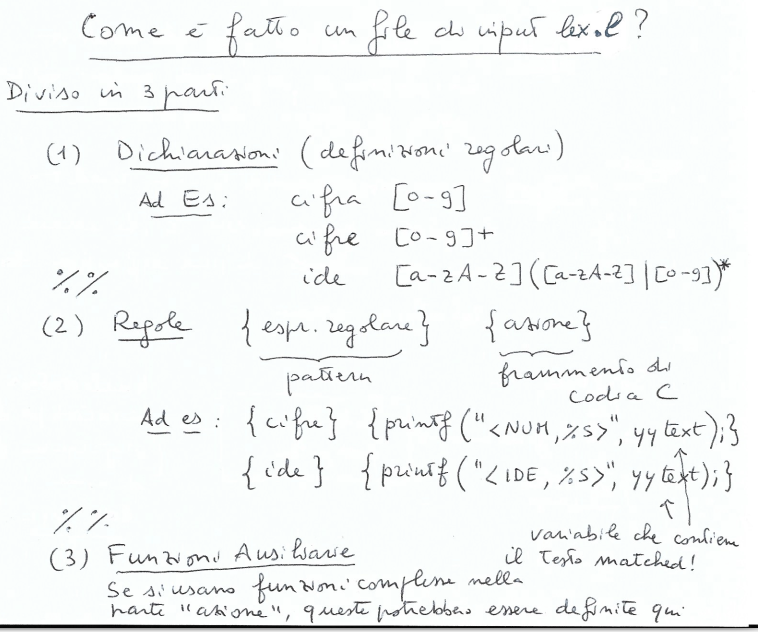 Come è fatto un file di input lex.l?
Diviso in 3 parti:
(1) Dichiarazioni (definizioni regolari)
Ad Es: cifra [0-9]
cifre [0-9]+
ide [a-zA-Z]([a-zA-Z]|[0-9])*
%%
(2) Regole {espr. regolare} {azione}
pattern frammento di
codice C
Ad es: {cifre} {printf("<NUM,%s>", yytext);}
{ide} {printf("<IDE,%s>", yytext);}
%%
variabile che contiene
(3) Funzioni Ausiliarie il testo matched!
Se si usano funzioni complesse nella
parte "azione", queste potrebbero essere definite qui